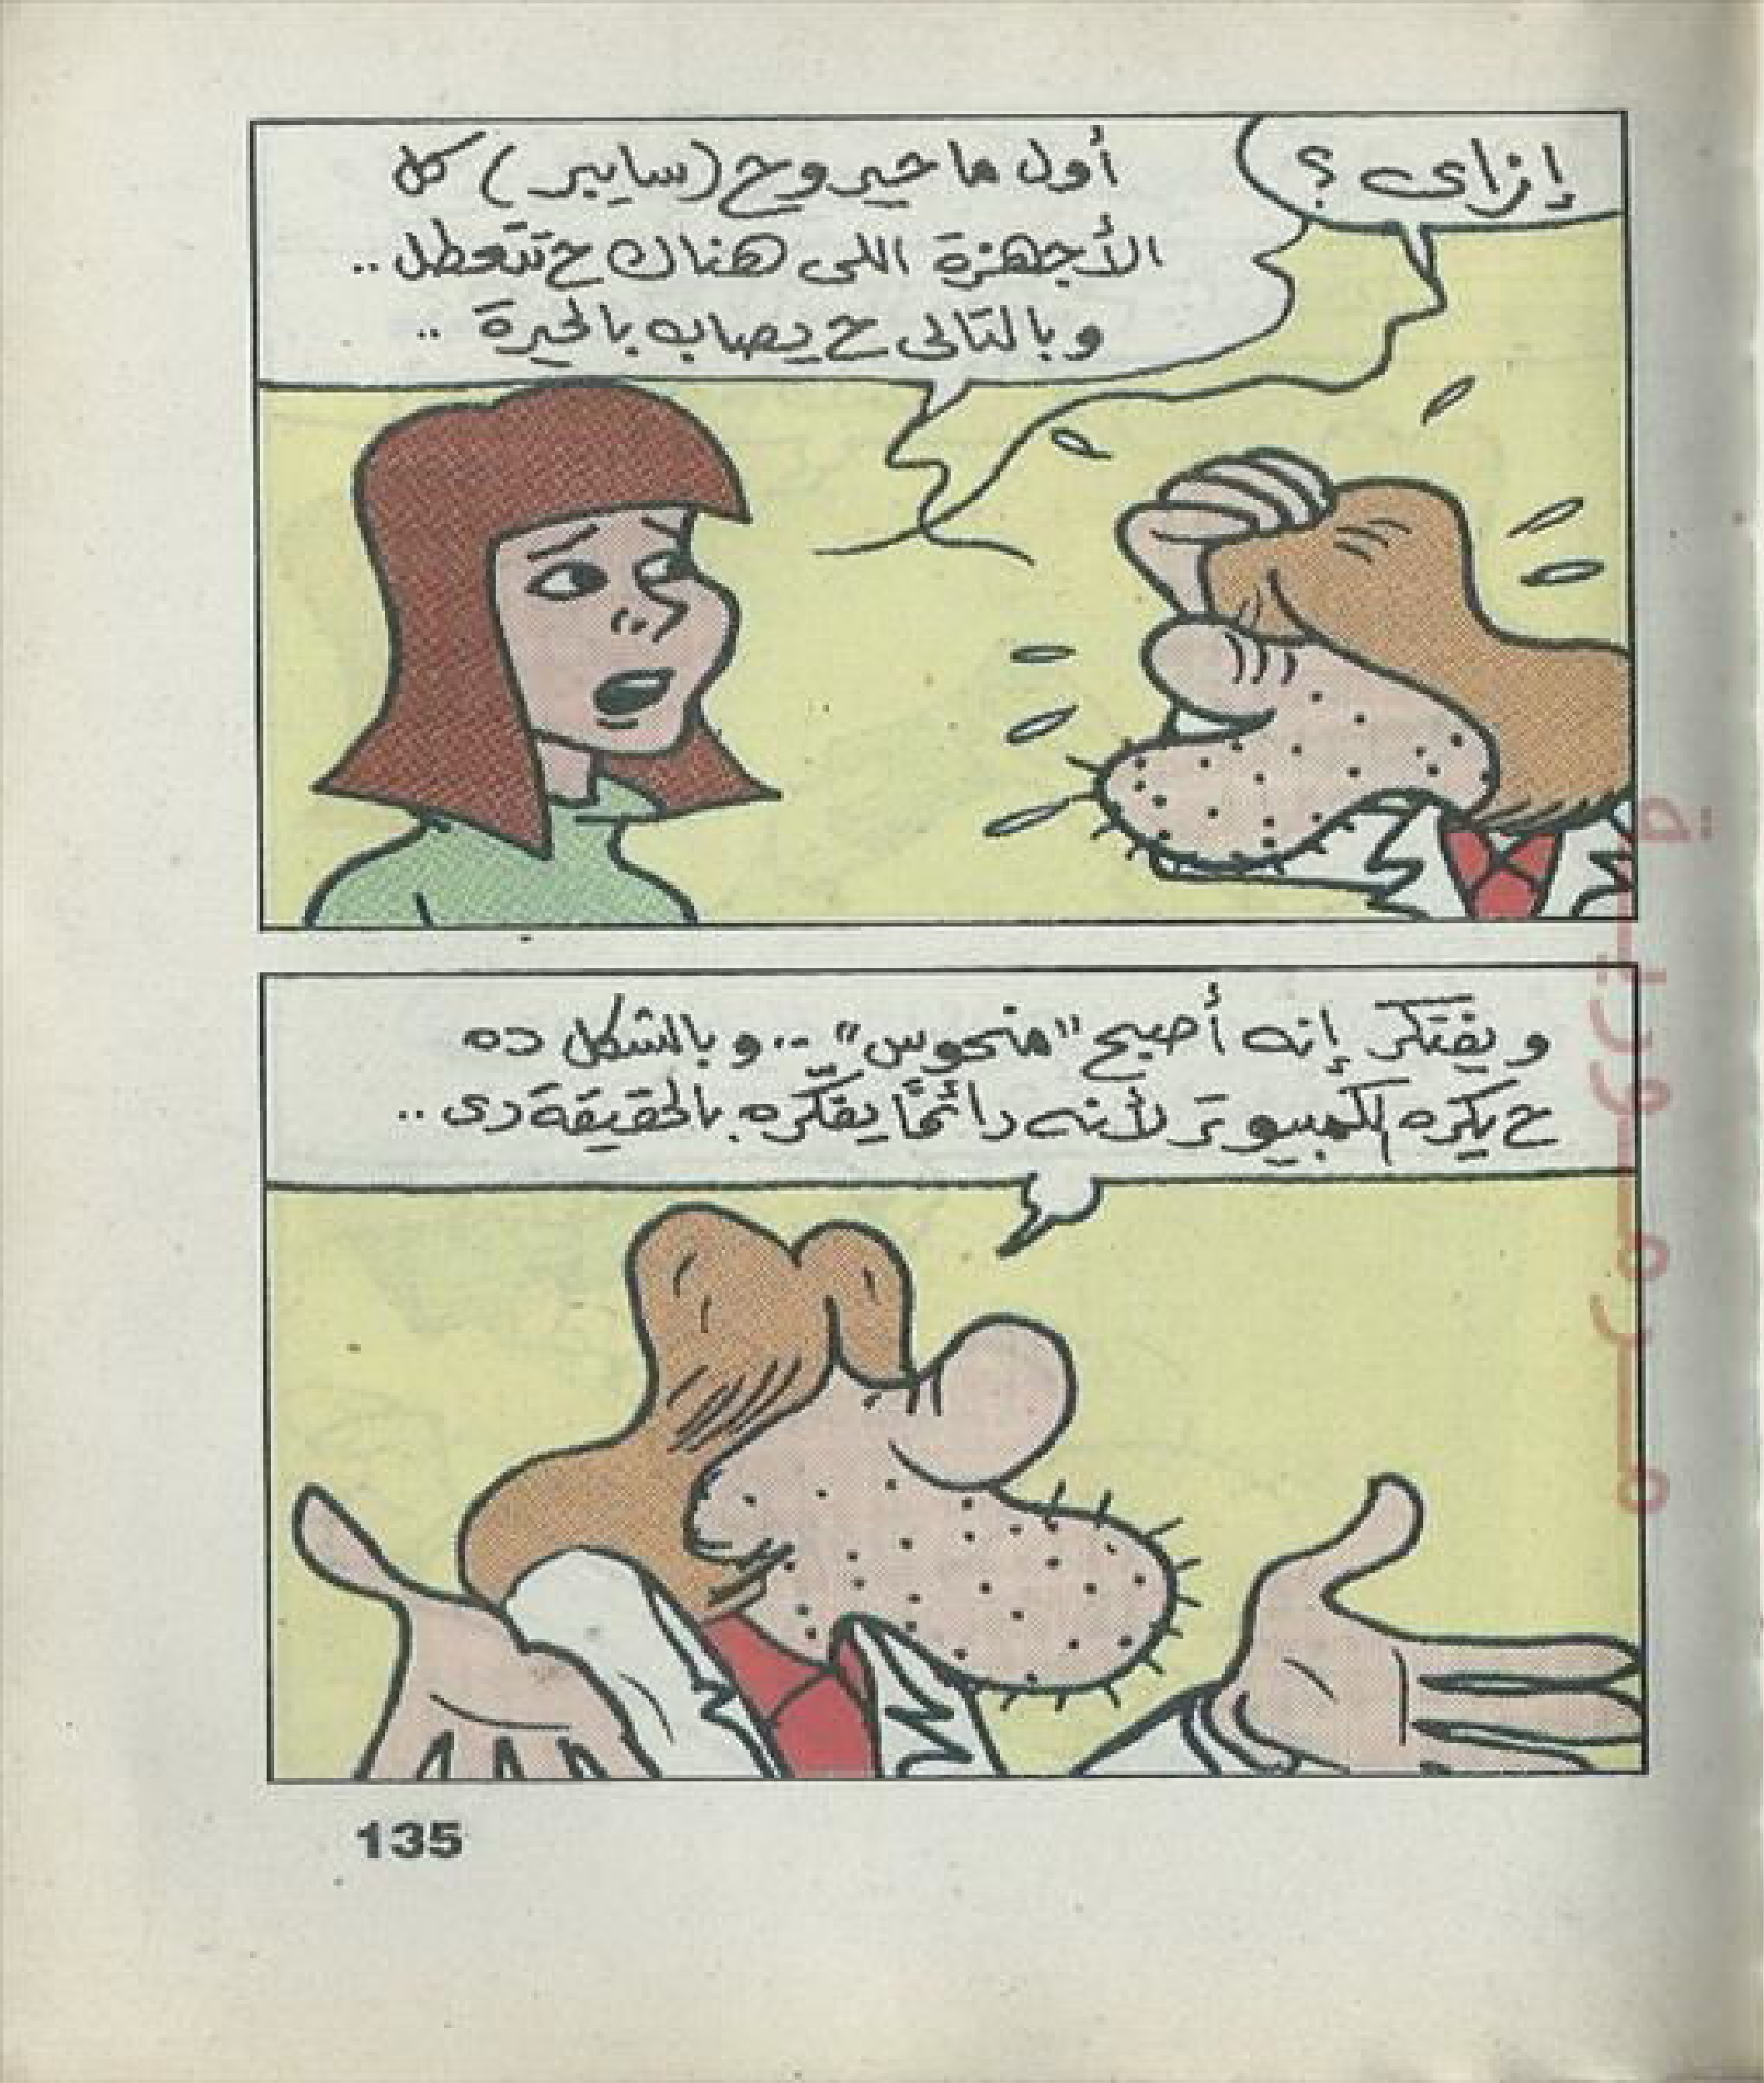 إزاى ؟
أول ما حيروح (سايبر) كل
الأجهزة اللى هناك ح تتعطل ..
وبالتالى ح يصاب بالحيرة ..
ويفتكر إنه أصبح "منحوس" .. وبالشكل ده
ح يكره الكمبيوتر لأنه دائمًا يفكّره بالحقيقة دى ..
135